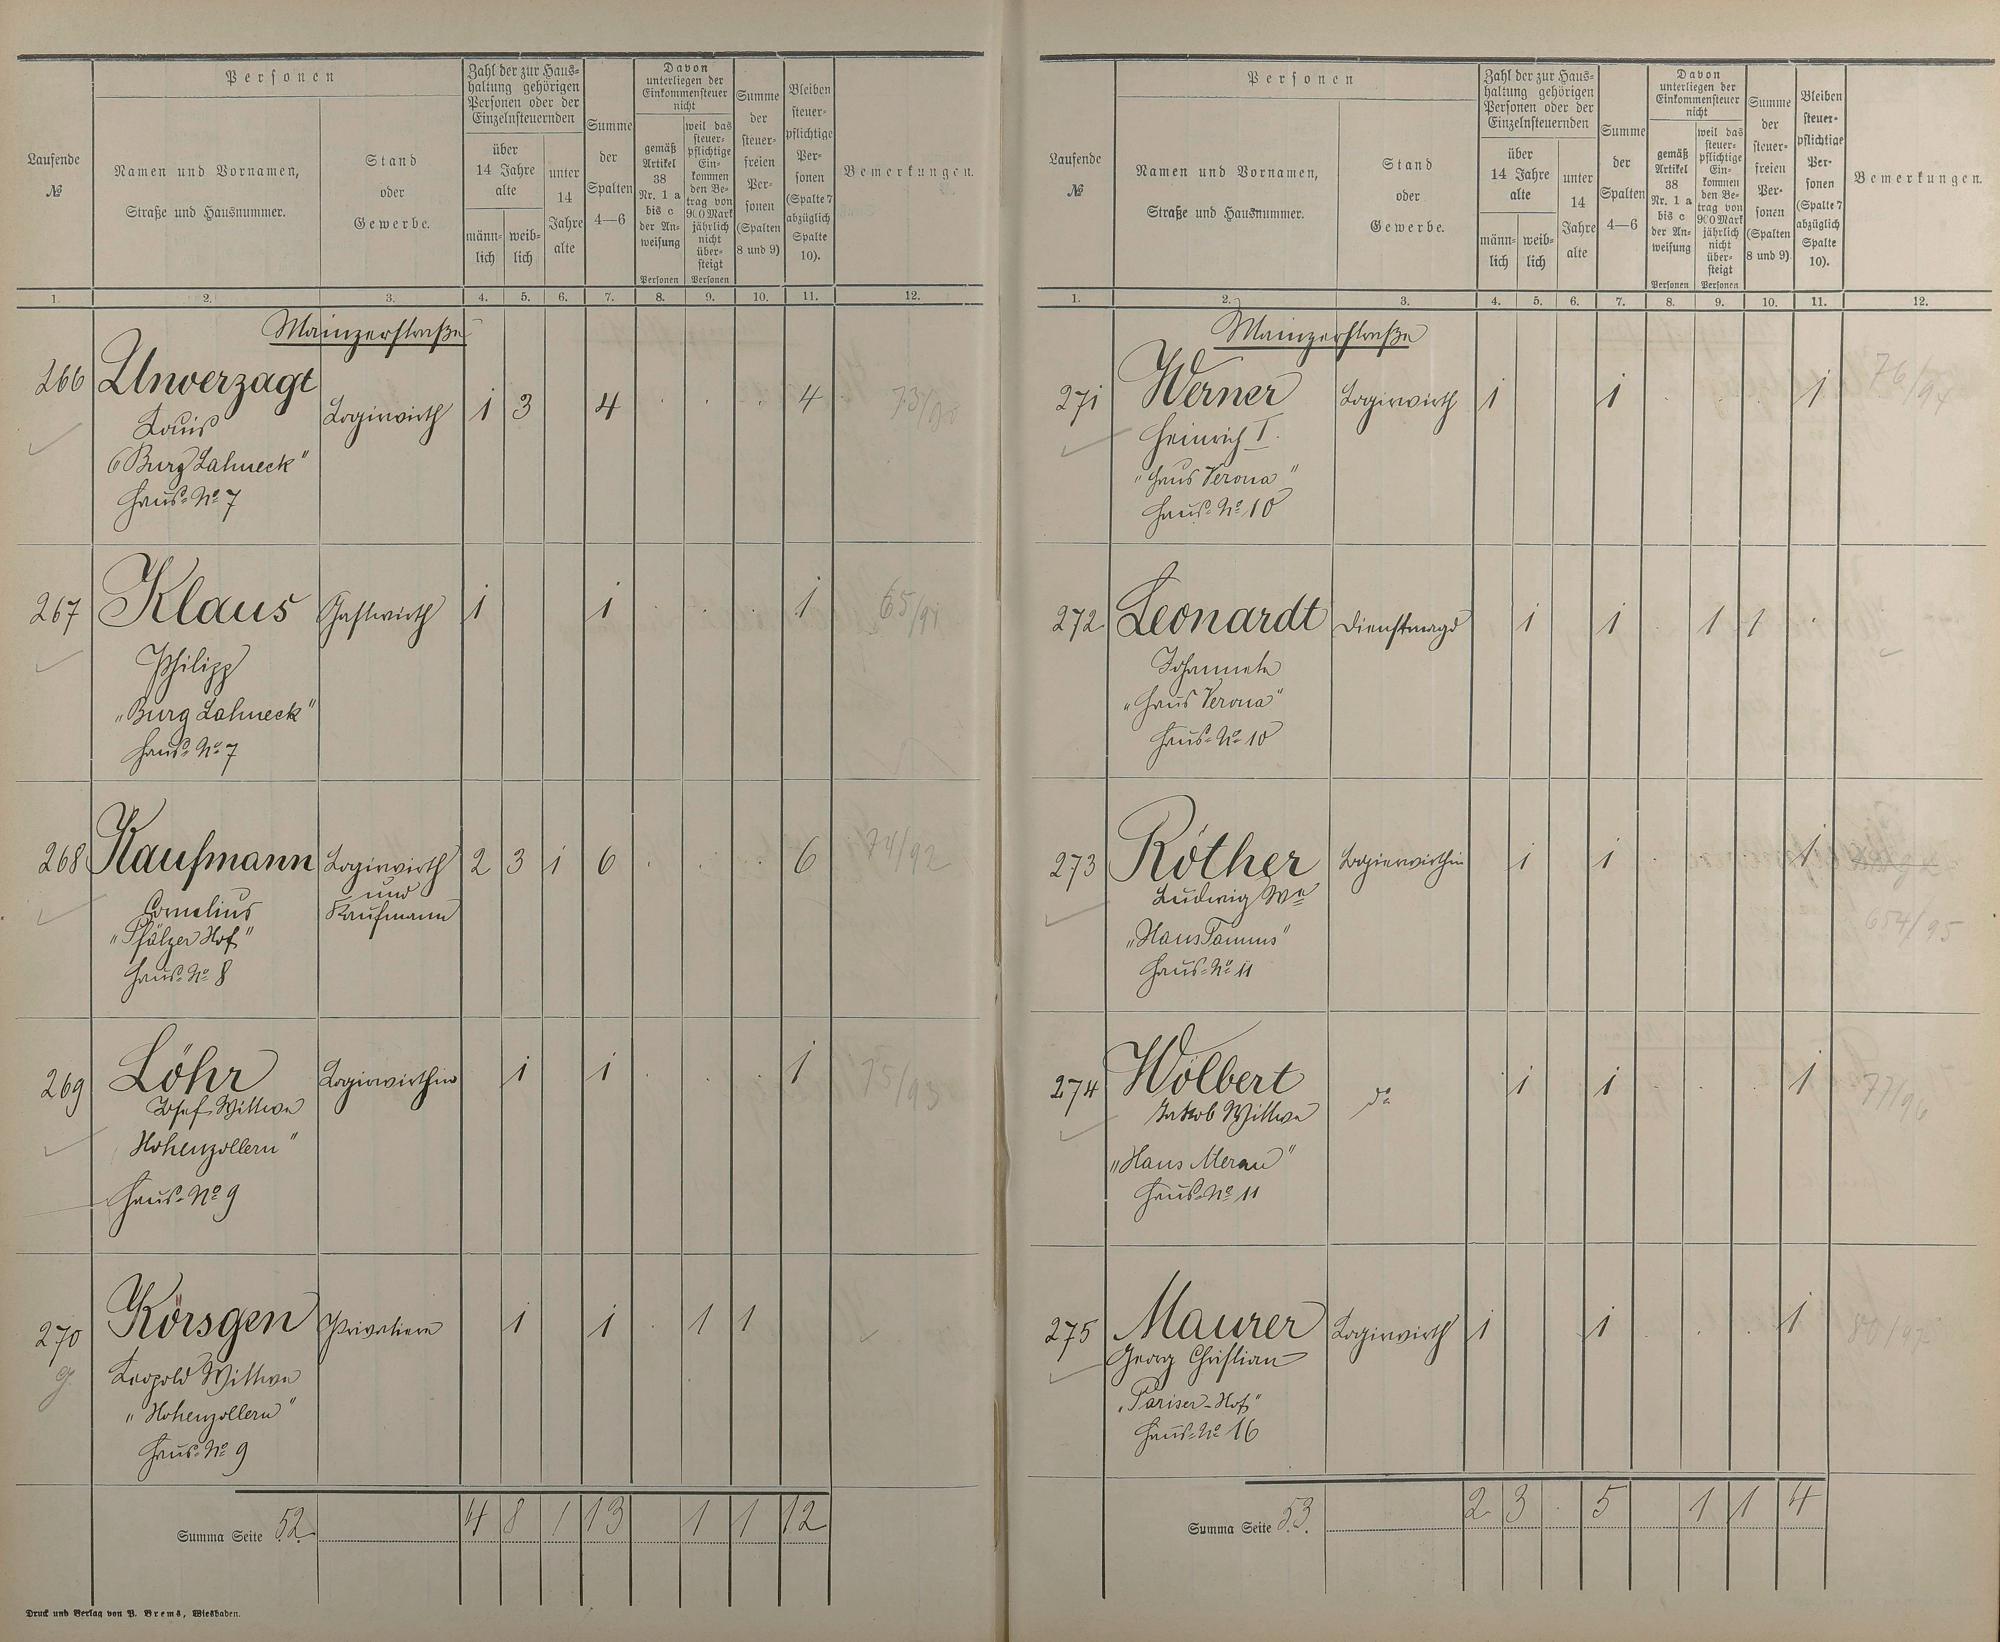 Laufende
№
Personen
Namen und Vornamen,
Straße und Hausnummer.
Stand
oder
Gewerbe.
Zahl der zur Haus-
haltung gehörigen
Personen oder der
Einzelnsteuernden
über
14 Jahre
alte
männ-
lich
weib-
lich
unter
14
Jahre
alte
Summe
der
Spalten
4—6
Davon
unterliegen der
Einkommensteuer
nicht
gemäß
Artikel
38
Nr. 1 a
bis c
der An-
weisung
Personen
weil das
steuer-
pflichtige
Ein-
kommen
den Be-
trag von
900 Mark
jährlich
nicht
über-
steigt
Personen
Summe
der
steuer-
freien
Per-
sonen
(Spalten
8 und 9)
Bleiben
steuer-
pflichtige
Per-
sonen
(Spalte 7
abzüglich
Spalte
10).
Bemerkungen.
1. 2. 3. 4. 5. 6. 7. 8. 9. 10. 11. 12.
Mainzerstraße
266 Unverzagt Logirwirth 1 3 4 4 73/90
Louis
"Burg Lahneck"
Haus-No 7
267 Klaus Gastwirth 1 1 1 65/91
Philipp
"Burg Lahneck"
Haus-No 7
268 Kaufmann Logirwirth 2 3 1 6 6 74/92
und
Cornelius Kaufmann
"Pfälzer Hof"
Haus-No 8
269 Löhr Logirwirthin 1 1 1 75/93
Josef Wittwe
Hohenzollern"
Haus-No 9
270 Körsgen Privatiere 1 1 1 1
g. Leopold Wittwe
"Hohenzollern"
Haus-No 9
Summa Seite 52. 4 8 1 13 1 1 12
Druck und Verlag von P. Brems, Wiesbaden.
Laufende
№
Personen
Namen und Vornamen,
Straße und Hausnummer.
Stand
oder
Gewerbe.
Zahl der zur Haus-
haltung gehörigen
Personen oder der
Einzelnsteuernden
über
14 Jahre
alte
männ-
lich
weib-
lich
unter
14
Jahre
alte
Summe
der
Spalten
4—6
Davon
unterliegen der
Einkommensteuer
nicht
gemäß
Artikel
38
Nr. 1 a
bis c
der An-
weisung
Personen
weil das
steuer-
pflichtige
Ein-
kommen
den Be-
trag von
900 Mark
jährlich
nicht
über-
steigt
Personen
Summe
der
steuer-
freien
Per-
sonen
(Spalten
8 und 9)
Bleiben
steuer-
pflichtige
Per-
sonen
(Spalte 7
abzüglich
Spalte
10).
Bemerkungen.
1. 2. 3. 4. 5. 6. 7. 8. 9. 10. 11. 12.
Mainzerstraße
271 Werner Logirwirth 1 1 1 76/94
Heinrich I.
"Haus Verona"
Haus-No 10
272 Leonardt Dienstmagd 1 1 1 1
Johannete
"Haus Verona"
Haus-No 10
273 Röther Logierwirthin 1 1 1
Ludwig We
"Haus Taunus" 654/95
Haus-No 11
274 Wölbert do 1 1 1 77/96
Jakob Wittwe
"Haus Meran"
Haus-No 11
275 Maurer Logirwirth 1 1 1 80/97
Georg Christian
"Pariser-Hof"
Haus-No 16
Summa Seite 53. 2 3 5 1 1 4